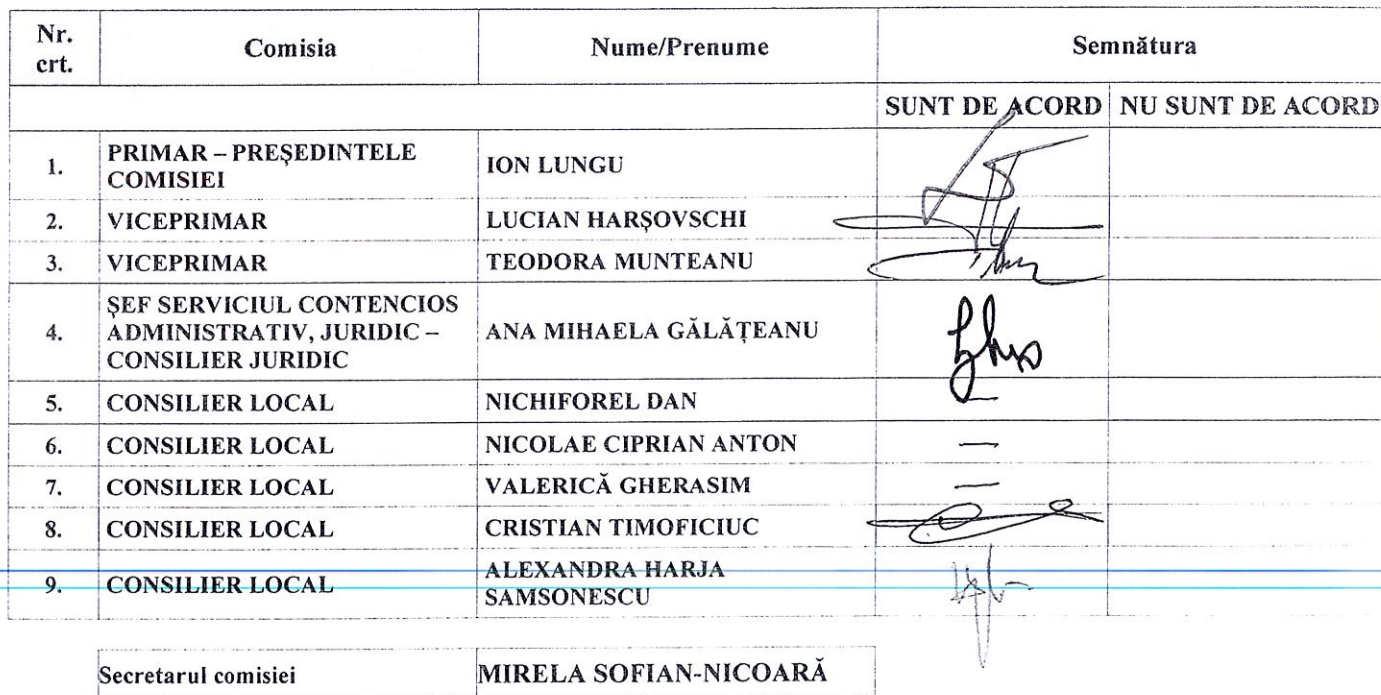 Nr. crt.
Comisia
Nume/Prenume
Semnătura
SUNT DE ACORD
NU SUNT DE ACORD
1.
PRIMAR – PREȘEDINTELE
COMISIEI
ION LUNGU
2.
VICEPRIMAR
LUCIAN HARȘOVSCHI
3.
VICEPRIMAR
TEODORA MUNTEANU
4.
ȘEF SERVICIUL CONTENCIOS
ADMINISTRATIV, JURIDIC –
CONSILIER JURIDIC
ANA MIHAELA GĂLĂȚEANU
5.
CONSILIER LOCAL
NICHIFOREL DAN
—
6.
CONSILIER LOCAL
NICOLAE CIPRIAN ANTON
—
7.
CONSILIER LOCAL
VALERICĂ GHERASIM
—
8.
CONSILIER LOCAL
CRISTIAN TIMOFICIUC
9.
CONSILIER LOCAL
ALEXANDRA HARJA
SAMSONESCU
Secretarul comisiei
MIRELA SOFIAN-NICOARĂ